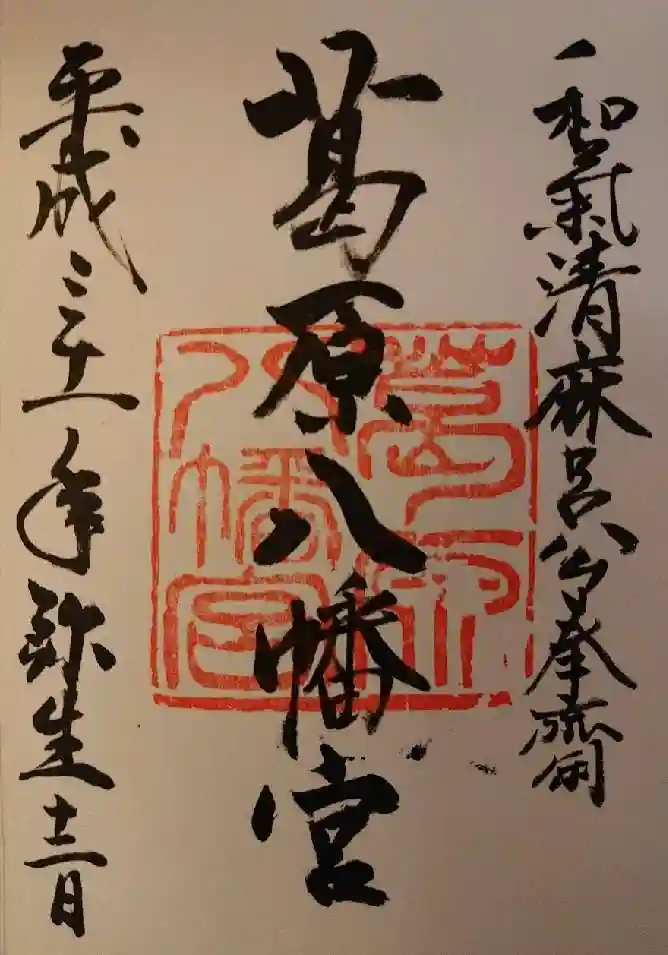 一 和氣清麻呂公奉齋
葛原八幡宮
平成三十一年弥生十二日
葛原
八幡宮